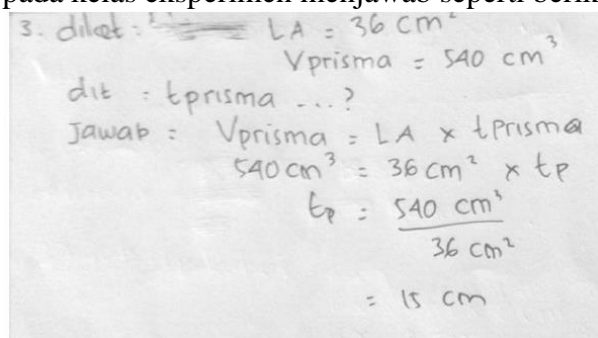 pada kelas eksperimen menjawab seperti
3. diket : LA = 36 cm²
Vprisma = 540 cm³
dit : tprisma ...?
Jawab : Vprisma = LA x tprisma
540 cm³ = 36 cm² x tp
tp = 540 cm³
36 cm²
= 15 cm